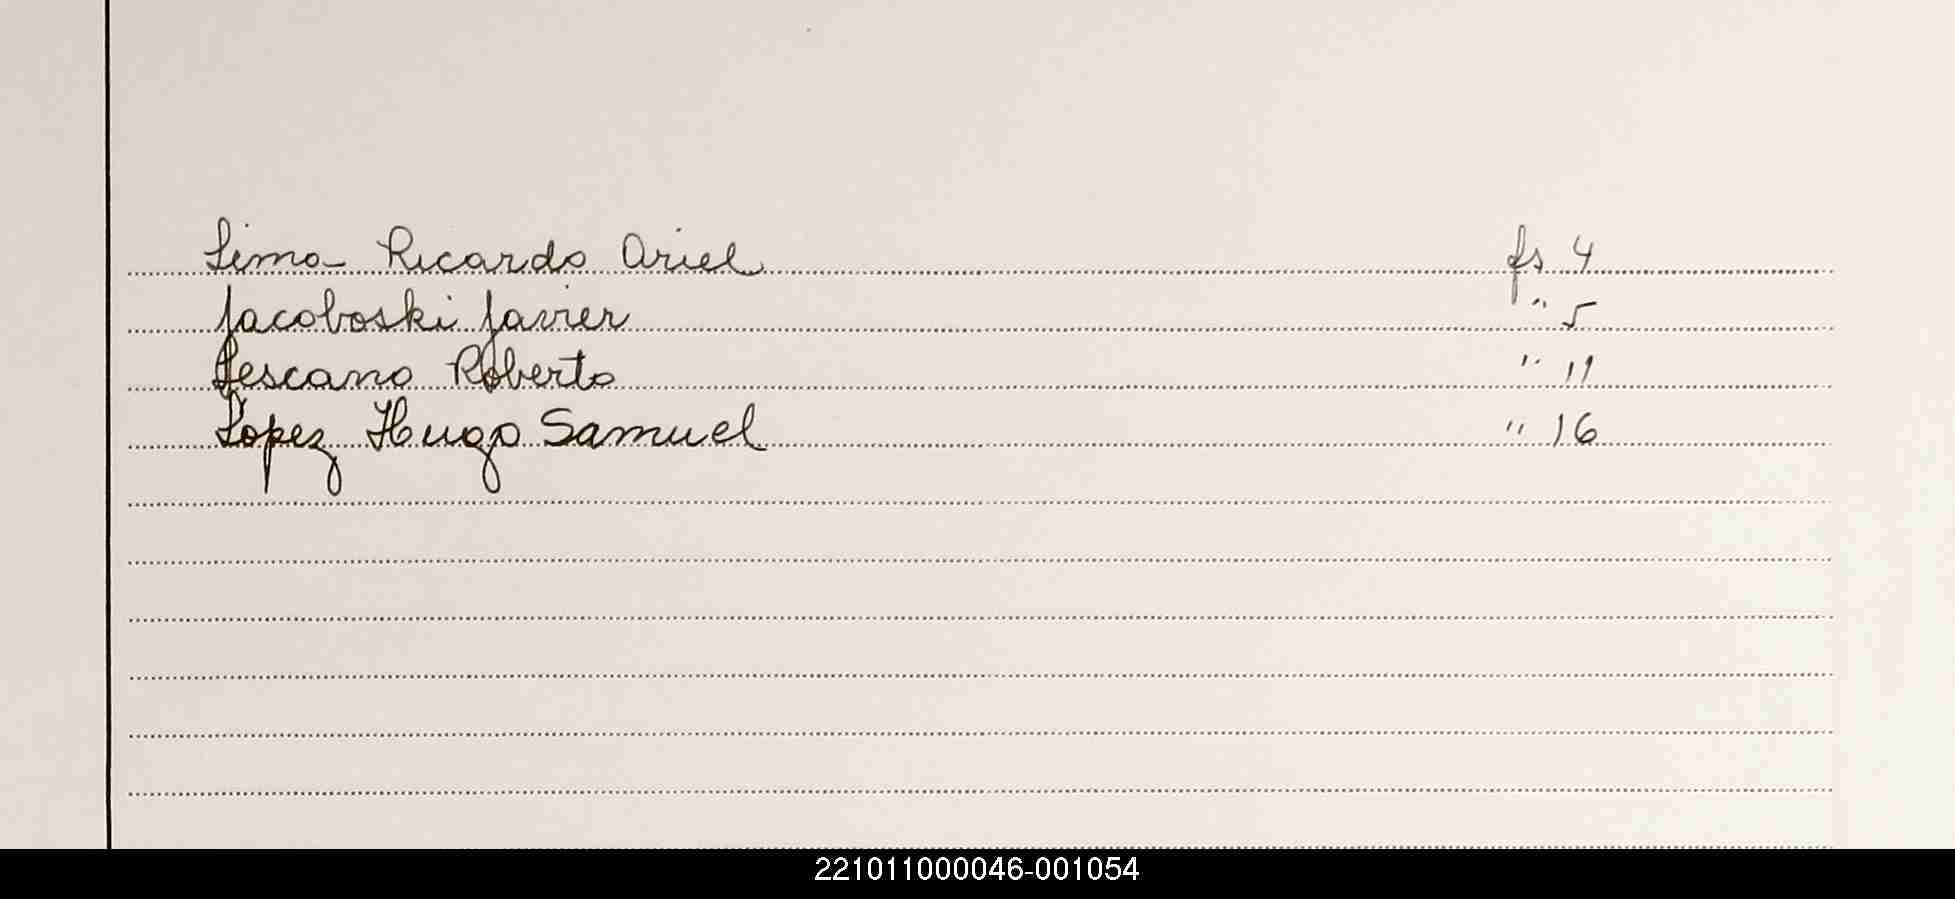 Lima Ricardo Ariel fs 4
Jacoboski Javier " 5
Lescano Roberto " 11
Lopez Hugo Samuel " 16
221011000046-001054